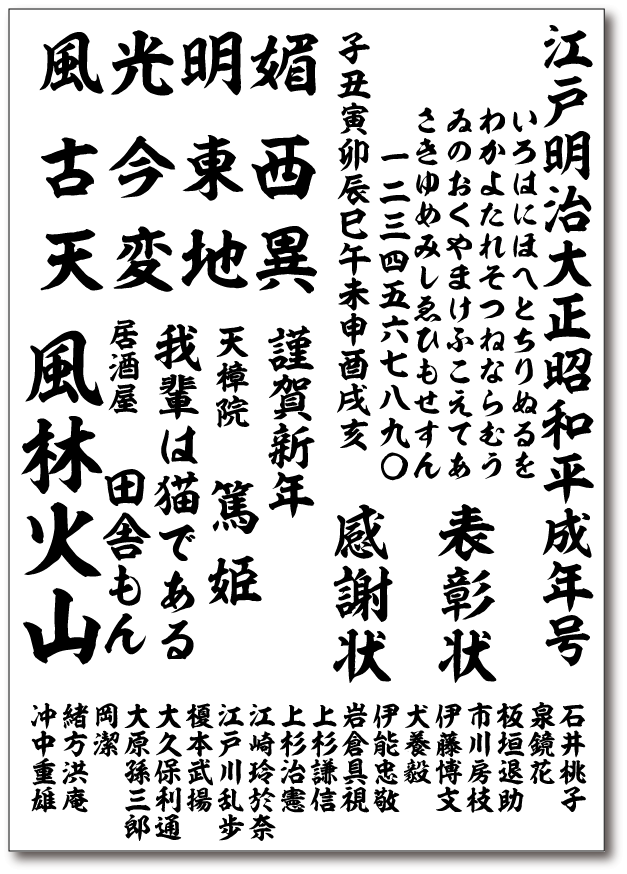 江戸明治大正昭和平成年号
いろはにほへとちりぬるを
わかよたれそつねならむう
ゐのおくやまけふこえてあ
さきゆめみしゑひもせすん
一二三四五六七八九〇
子丑寅卯辰巳午未申酉戌亥
媚西異
明東地
光今変
風古天
表彰状
感謝状
謹賀新年
天樟院 篤姫
我輩は猫である
居酒屋 田舎もん
風林火山
石井桃子
泉鏡花
板垣退助
市川房枝
伊藤博文
犬養毅
伊能忠敬
岩倉具視
上杉謙信
上杉治憲
江崎玲於奈
江戸川乱歩
榎本武揚
大久保利通
大原孫三郎
岡潔
緒方洪庵
沖中重雄